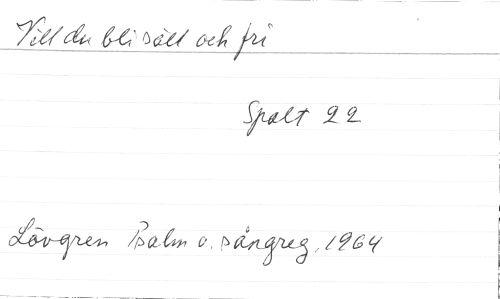 Vill du bli säll och fri
Spalt 22
Lövgren Psalm o. sångreg. 1964